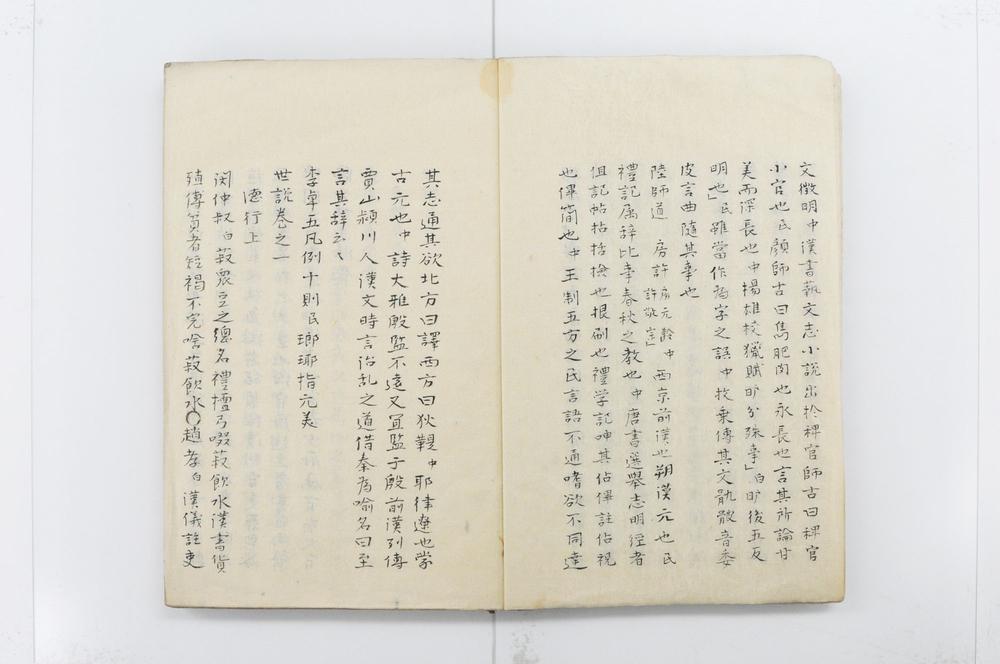 文徴明中漢書藝文志小說出於稗官師古曰稗官
小官也民顏師古曰雋肥肉也永長也言其所論甘
美而深長也中揚雄校獵賦旷分殊事」白旷後五反
明也」民雖當作為字之誤中枚乗傳其文骫骳音委
皮言曲隨其事也
陸師道 房許 房元齡 許敬宗」 中西京前漢也朔漢元也民
禮記属辞比事春秋之教也中唐書選舉志明經者
但記帖帖括撫也根刷也禮学記呻其佔僤註佔視
也僤簡也中王制五方之民言語不通嗜欲不同達
其志通其欲北方曰譯西方曰狄鞮中耶律遼也蒙
古元也中詩大雅殷監不遠又宜監于殷前漢列傳
賈山潁川人漢文時言治乱之道借秦為喻名曰至
言其辞云〻
李卓五凡例十則民瑯琊指元美
世說巻之一
德行上
閔仲叔白菽衆豆之總名禮檀弓啜菽飲水漢書貨
殖傳貧者短褐不完唅菽飲水〇趙孝白漢儀註吏